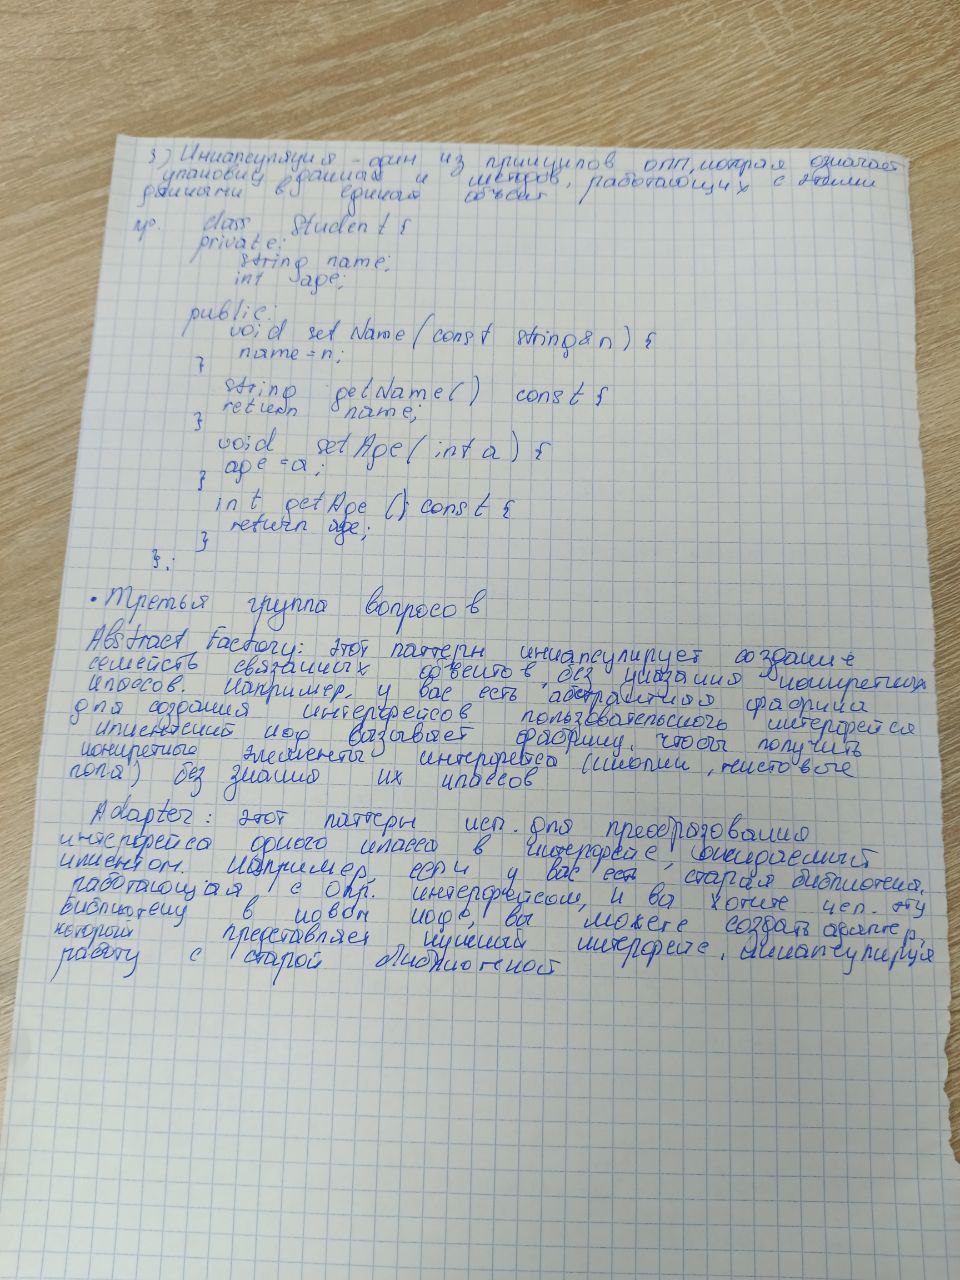 3) Инкапсуляция - один из принципов ОПП, которая означает
упаковку данных и методов, работающих с этими
данными в единый объект
пр. class Student {
private:
string name;
int age;
public:
void setName(const string& n) {
name = n;
}
string getName() const {
return name;
}
void setAge(int a) {
age = a;
}
int getAge() const {
return age;
}
};
• Третья группа вопросов
Abstract Factory: Этот паттерн инкапсулирует создание
семейств связанных объектов, без указания конкретных
классов. Например, у вас есть абстрактная фабрика
для создания интерфейсов пользовательского интерфейса
клиентский код вызывает фабрику, чтобы получить
конкретные элементы интерфейса (кнопки, текстовые
поля) без знания их классов
Adapter: этот паттерн исп. для преобразования
интерфейса одного класса в интерфейс, ожидаемый
клиентом. Например, если у вас есть старая библиотека,
работающая с опр. интерфейсом, и вы хотите исп. эту
библиотеку в новом коде, вы можете создать адаптер,
который представляет нужный интерфейс, инкапсулируя
работу с старой библиотекой